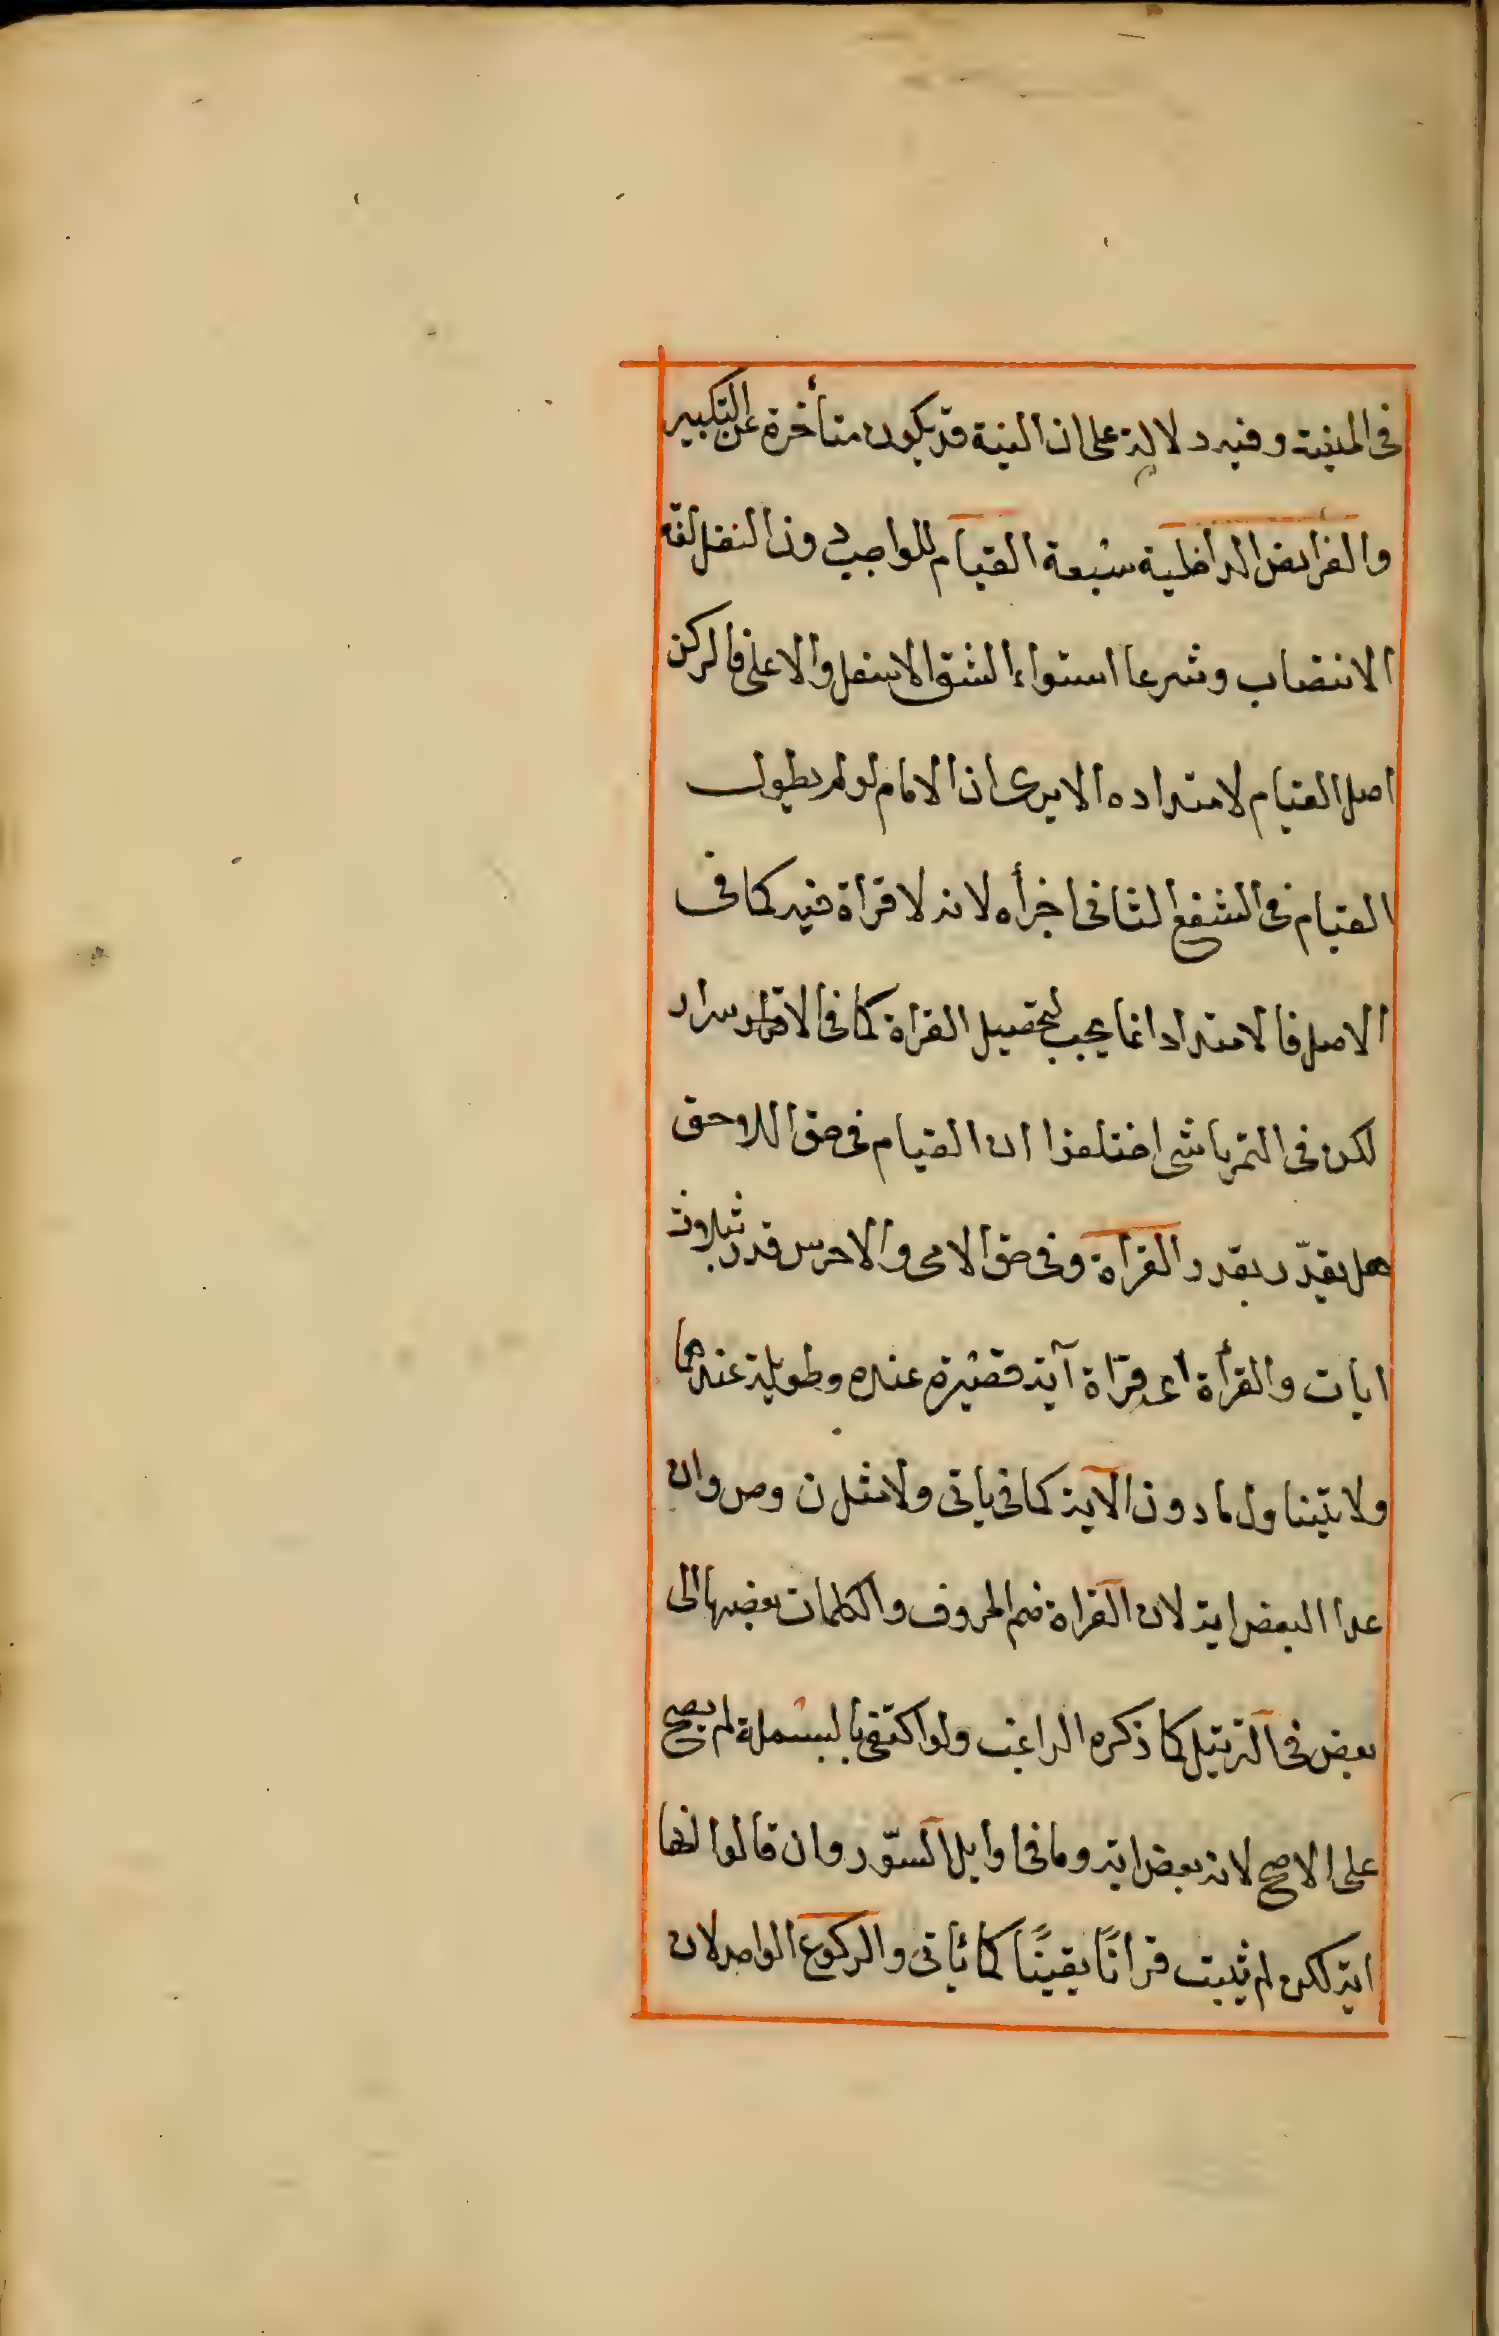 في المنية وفيه دلالة على ان النية قد يكون متأخرة عن التكبير
والفرايض الداخلية سبعة القيام للواجب دون النفل لغة
الانتصاب وشرعا استواء الشق الاسفل والاعلى فالركن
اصل القيام لا امتداده الا يرى ان الامام لو لم يطول
القيام في الشفع الثاني اجزأه لانه لا قرأة فيه كما في
الاصل فالامتداد انما يجب لتحصيل القراة كما في
لكن في التمرتاشى اختلفوا ان القيام في حق اللاحق
هل يقدّر بقدر القرأة وفي حق الامى والاخرس قدر ثلاث
ايات والقرأة اى قرّاة آية قصيرة عنده وطويلة عندهما
ولا يتناول ما دون الآية كما في ياتى ولا مثل ن وص وان
عدا البعض اية لان القراة ضم الحروف والكلمات بعضها الى
بعض في الترتيل كما ذكره الراغب ولو اكتفى بالبسملة لم يصح
على الاصح لانه بعض اية وما في اوايل السّور وان قالوا انها
اية لكن لم يثبت قرانًا يقينًا كما ياتى والركوع الواحد لان